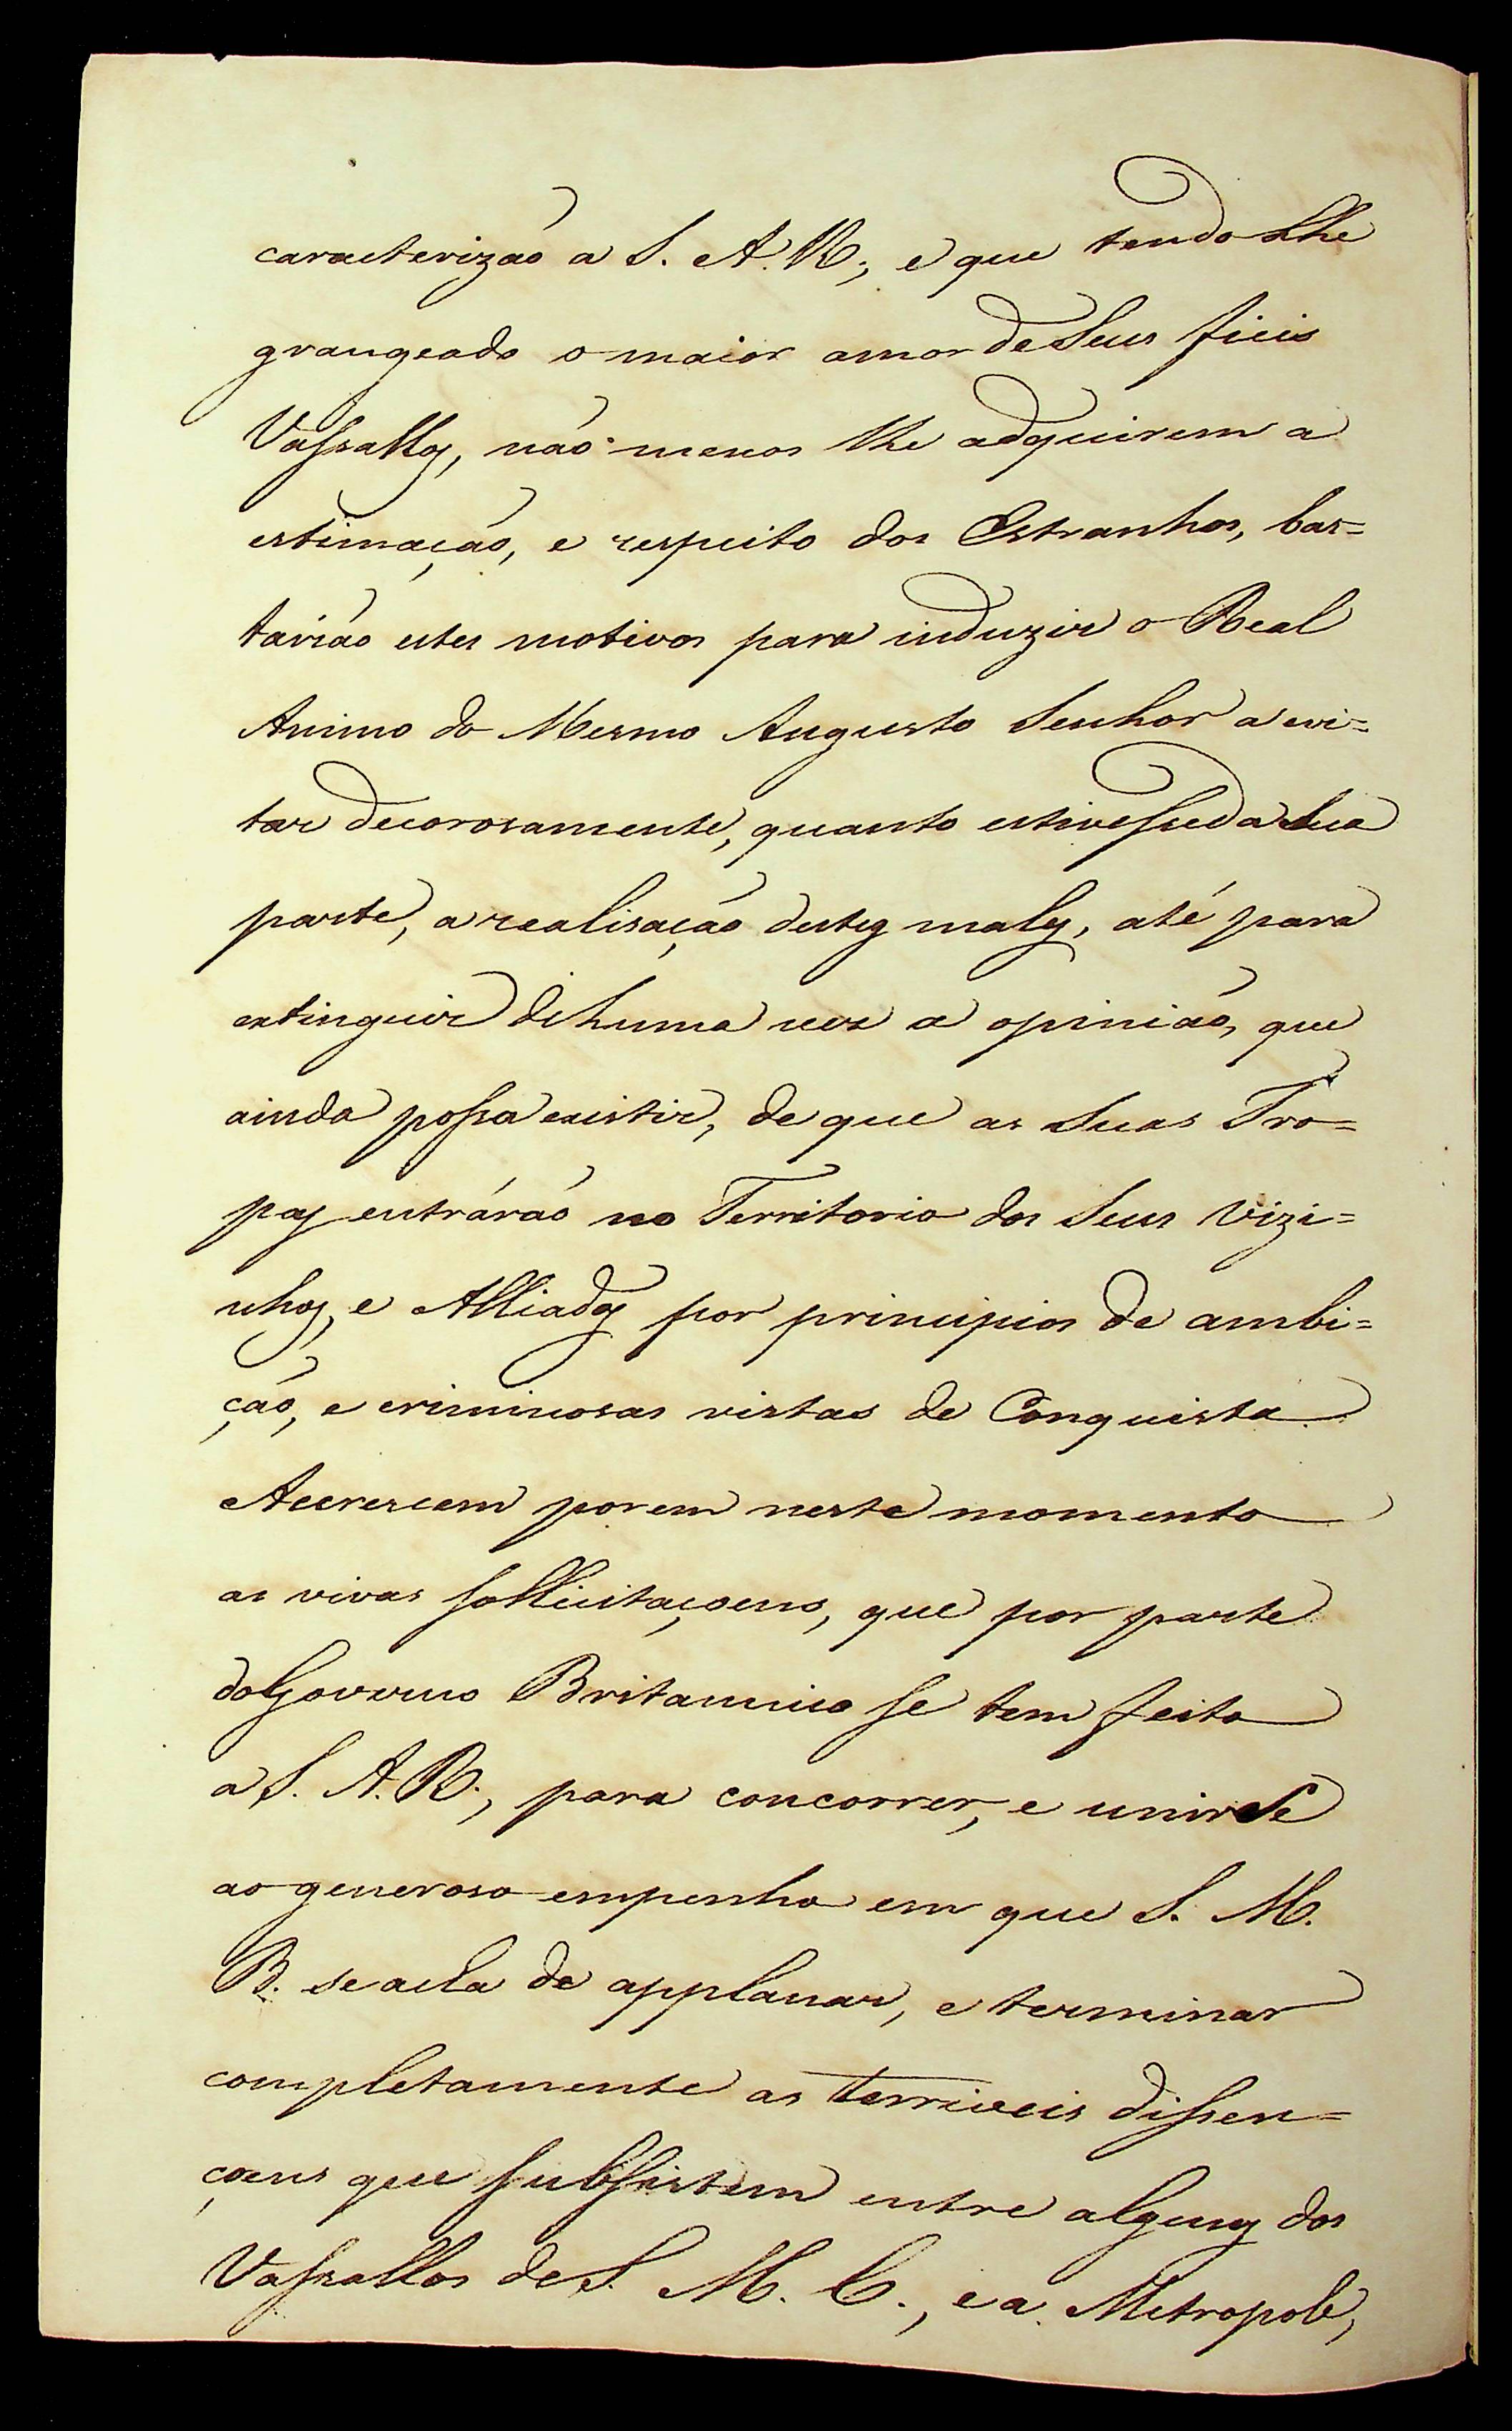 caracterizaõ a S. A. R., e que tendo-lhe
grangeado o maior amor de Seus fieis
Vassallos, naõ menos lhe adquirem a
estimaçaõ, e respeito dos Estranhos, bas=
tariaõ estes motivos para induzir o Real
Animo do Mesmo Augusto Senhor a evi=
tar decorosamente, quanto estivesse da Sua
parte, a realisaçaõ destes males, até para
extinguir de huma vez a opiniaõ, que
ainda possa existir, de que as Suas Tro=
pas entráraõ no Territorio dos Seus Vizi=
nhos, e Alliados por principios de ambi=
çaõ, e criminosas vistas de Conquista.
Accrescem porem neste momento
as vivas sollicitaçoens, que por parte
do Governo Britannico se tem feito
a S. A. R., para concorrer, e unirse
ao generoso empenho em que S. M.
B. se acha de applanar, e terminar
completamente as terriveis dissen=
çoens que subsistem entre alguns dos
Vassallos de S. M. C., e a Metropole,